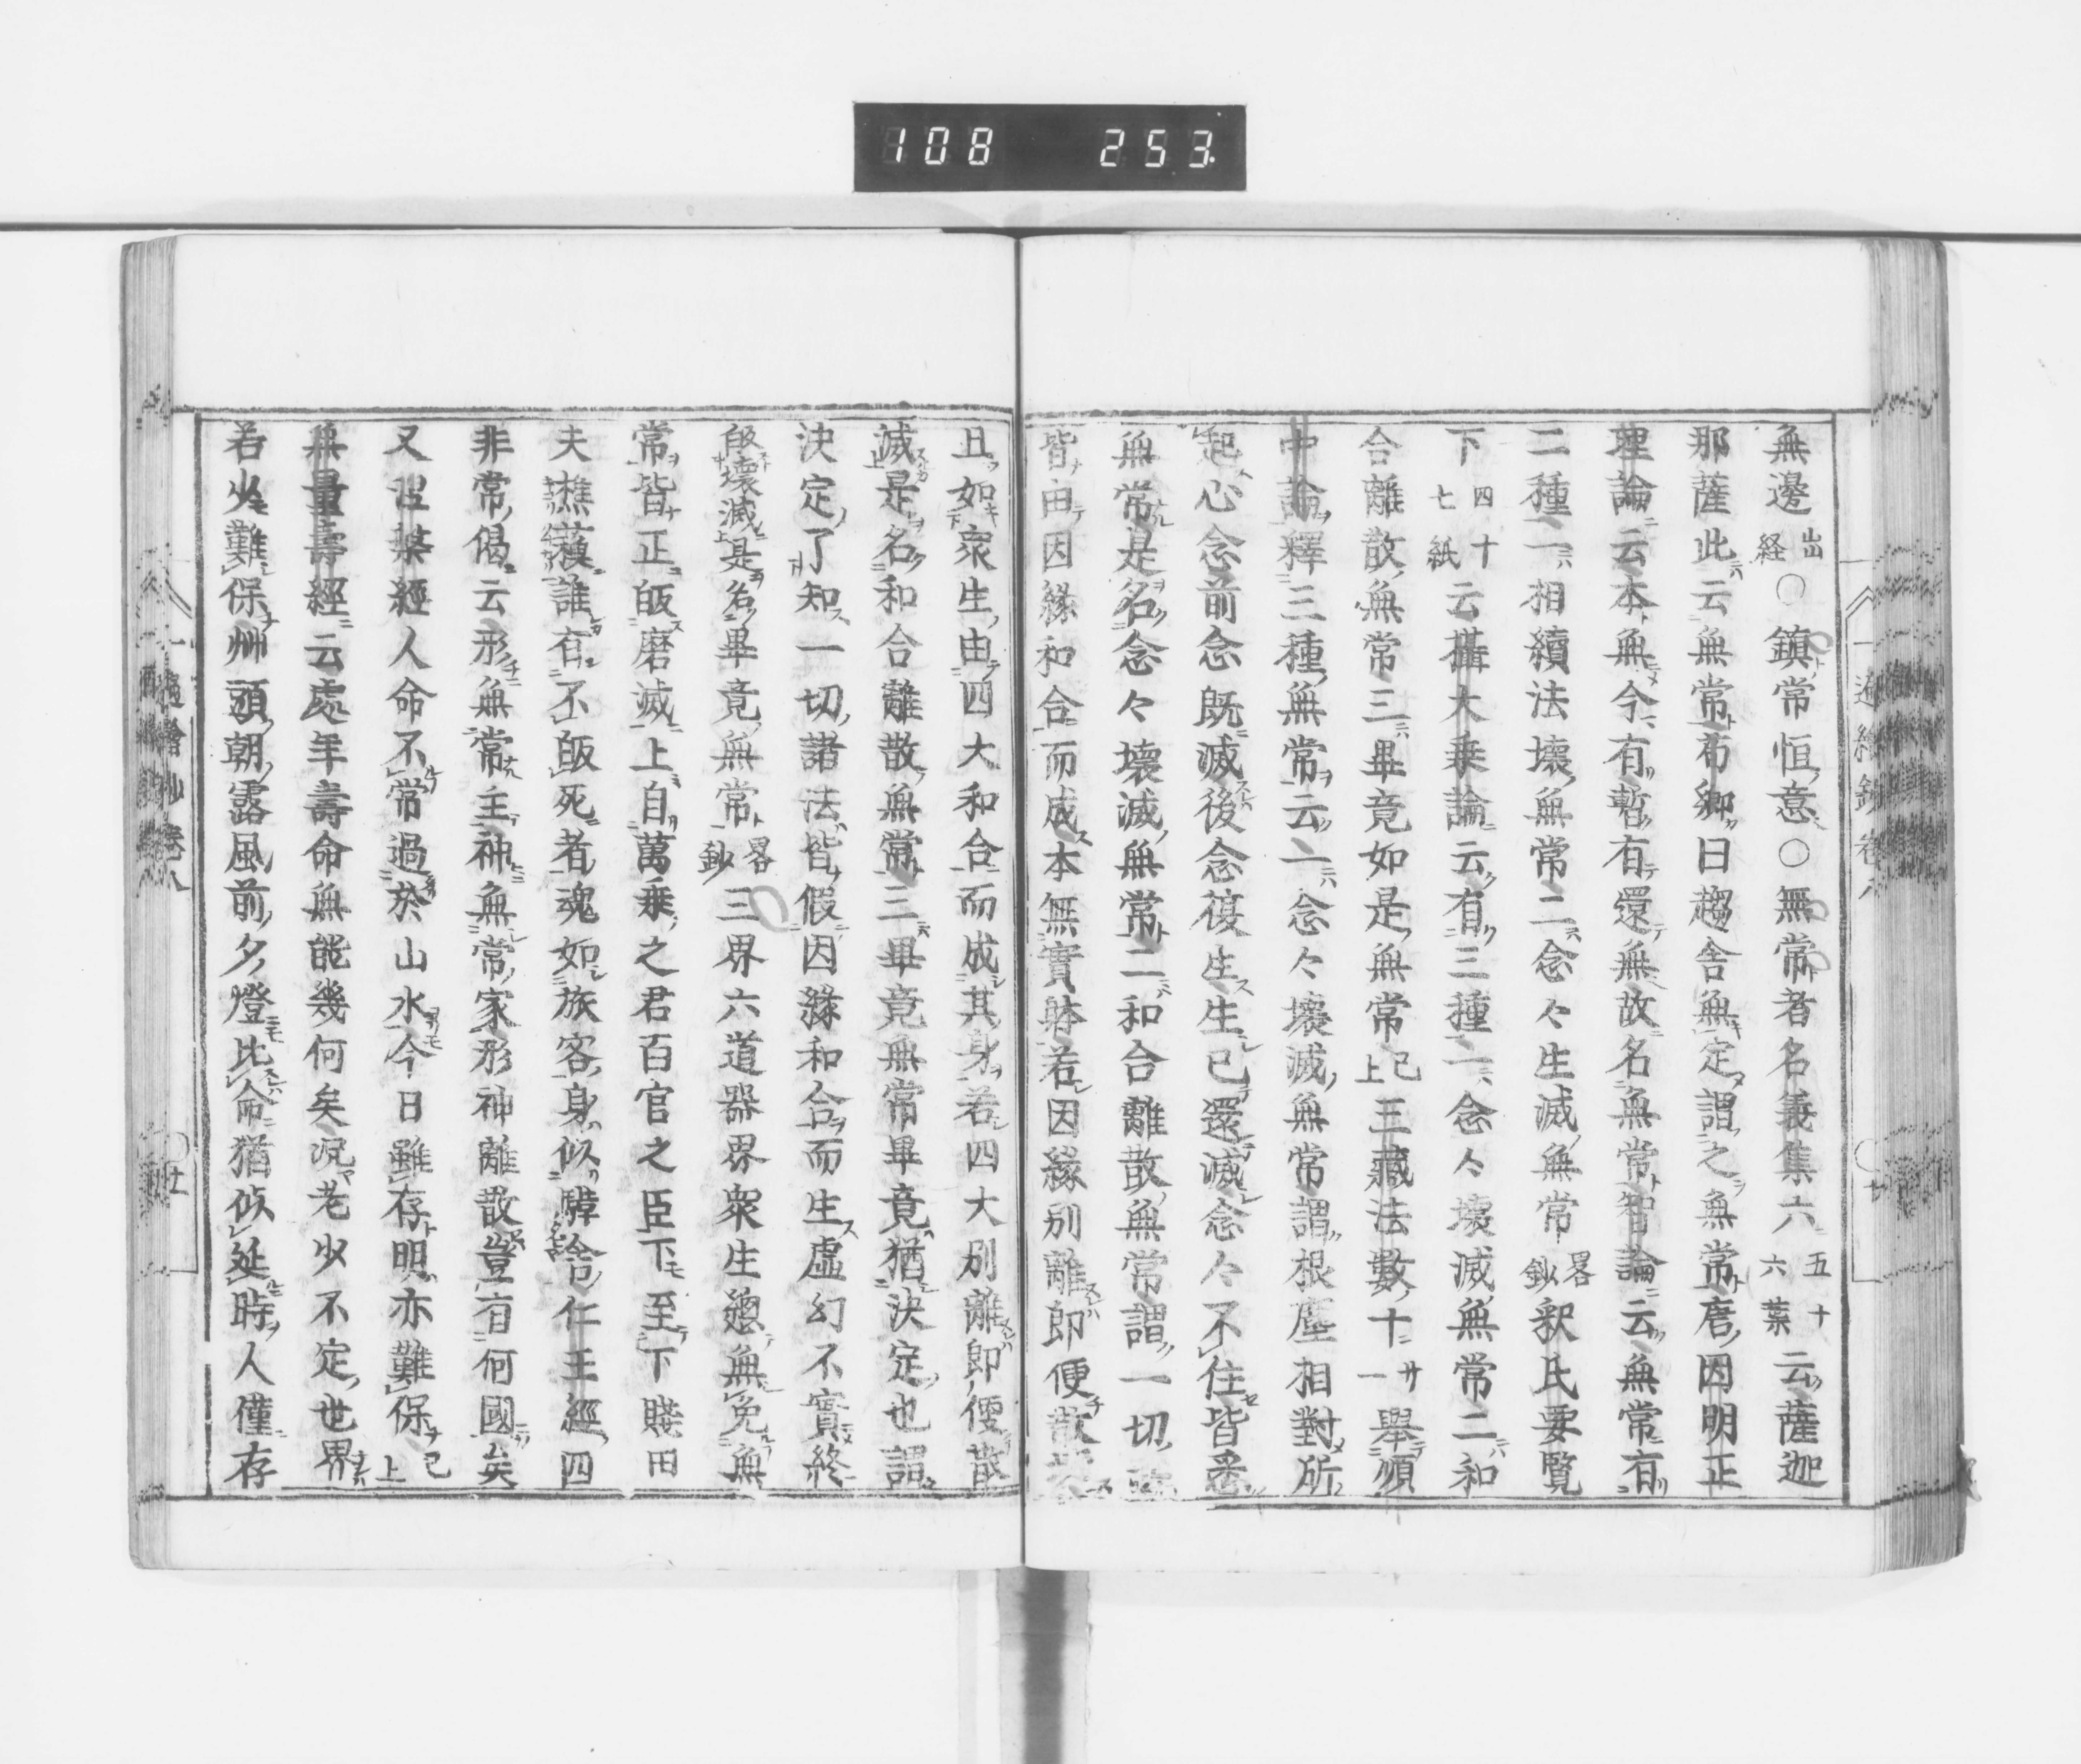 108 253
無邊出経○鎮常恒意○無常者名義集六五十六葉云薩迦
那薩此云無常荀卿曰趨舍無定謂之無常唐因明正
理論云本無今有暫有還無故名無常智論云無常有
二種一相續法壞無常二念々生滅無常畧鈔釈氏要覧
下四十七紙云攝大乗論云有三種一念々壊滅無常二和
合離散無常三畢竟如是無常已上三藏法數十一廿舉順
中論釋三種無常云一念々壞滅無常謂根塵相對所
起心念前念既滅後念復生生已還滅念々不住皆悉
無常是名念々壞滅無常二和合離散無常謂一切
皆由因緣和合而成本無實躰若因緣別離即便散
且如衆生由四大和合而成其身若四大別離即便散
滅是名和合離散無常三畢竟無常畢竟猶決定也謂
決定了知一切諸法皆假因緣和合而生虛幻不實終
皈壞滅是名畢竟無常畧鈔三界六道器界衆生總無免無
常皆正皈磨滅上自萬乗之君百官之臣下至下賤田
夫樵蘇誰有不皈死者魂如旅客身似驛舍仁王經四
非常偈云形無常主神無常家形神離散豈有何國矣
又涅槃經人命不常過於山水今日雖存明亦難保已上
無量壽經云處年壽命無能幾何矣況老少不定世界
若少難保艸頭朝露風前夕燈比命猶偵延時人僅存